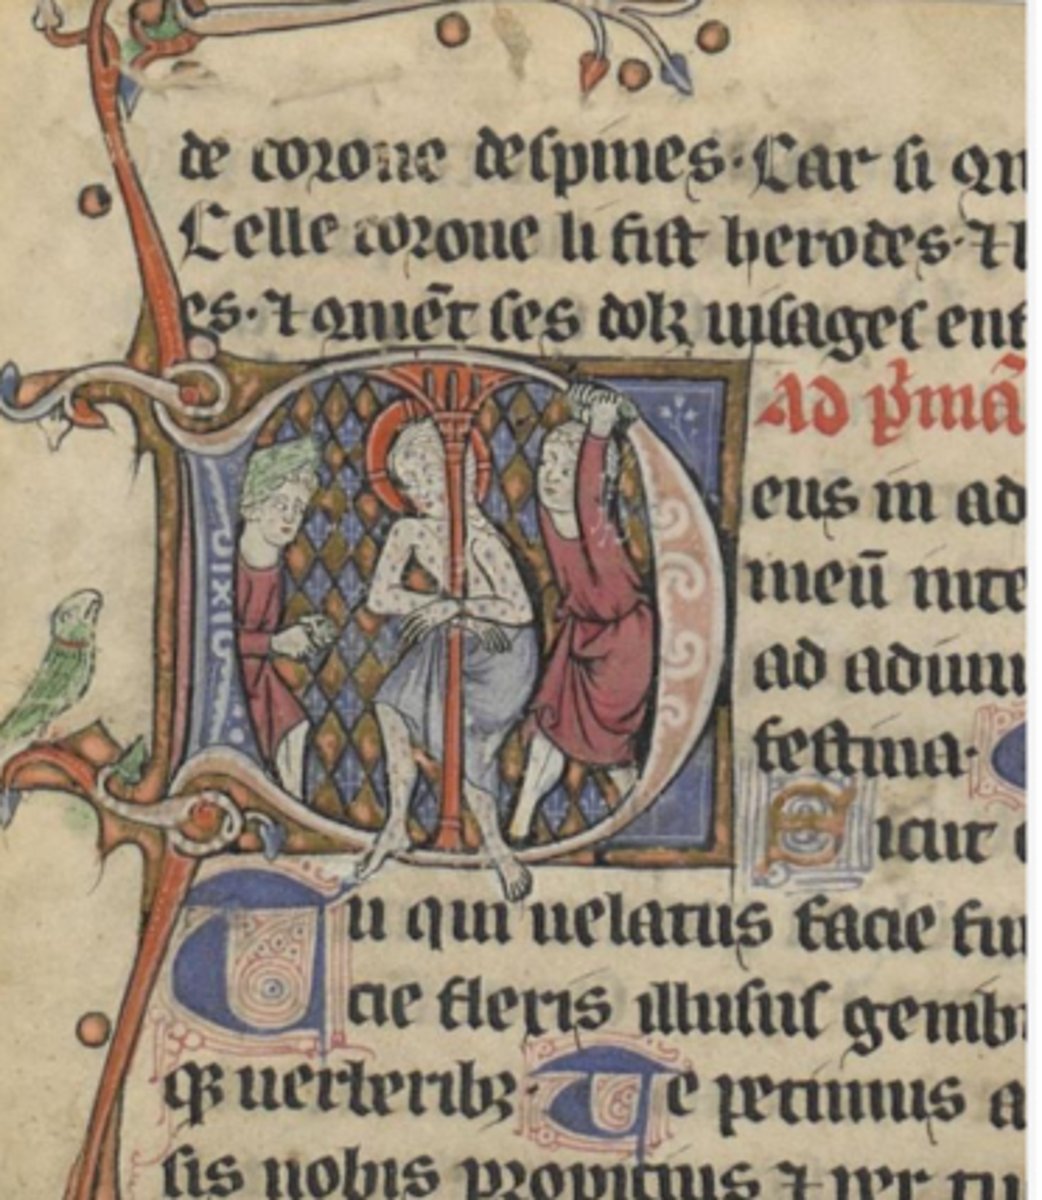 de corone despines. Car si qu
Celle corone li fist herodes. ⁊ l
es. ⁊ quiẽt ses dolz uisages ent
Ad p̃mã
Deus in ad
meũ inte
ad adiuu
festina.
Sicut e
Tu qui uelatus facie fui
cie fleris illusus genib
qꝫ uerteribꝫ. Te petimus a
sis nobis propitius ⁊ per tu